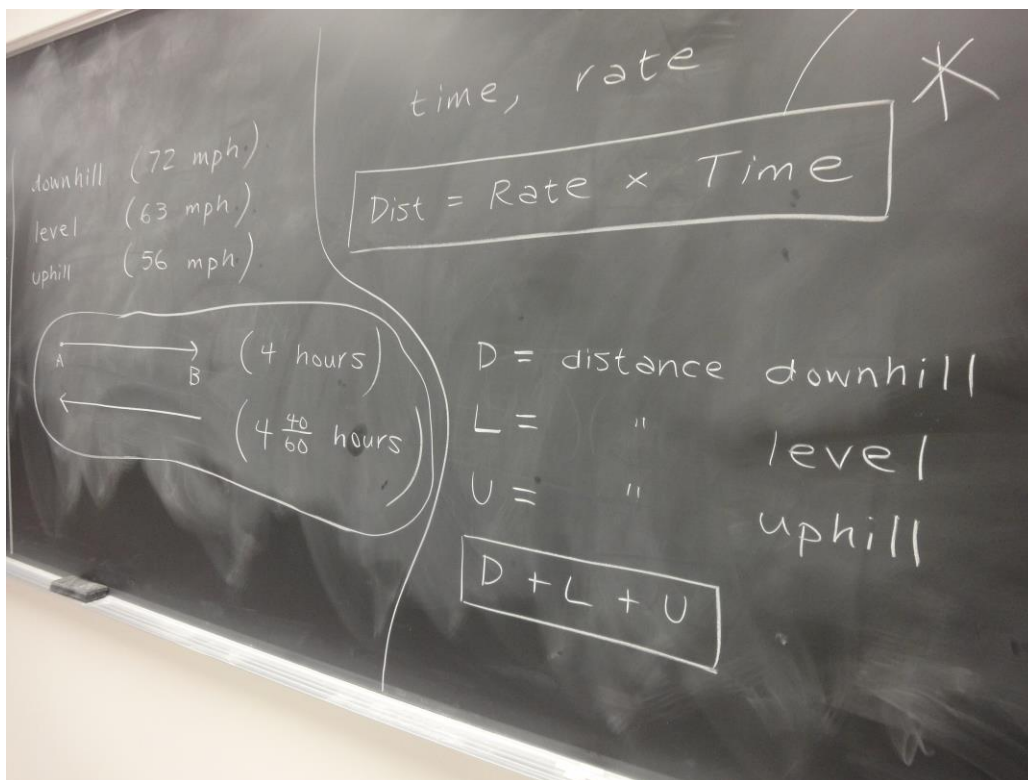 downhill (72 mph.)
level (63 mph.)
uphill (56 mph)
A B (4 hours)
(4 40/60 hours)
time, rate
*
Dist = Rate × Time
D = distance downhill
L = " level
U = " uphill
D + L + U